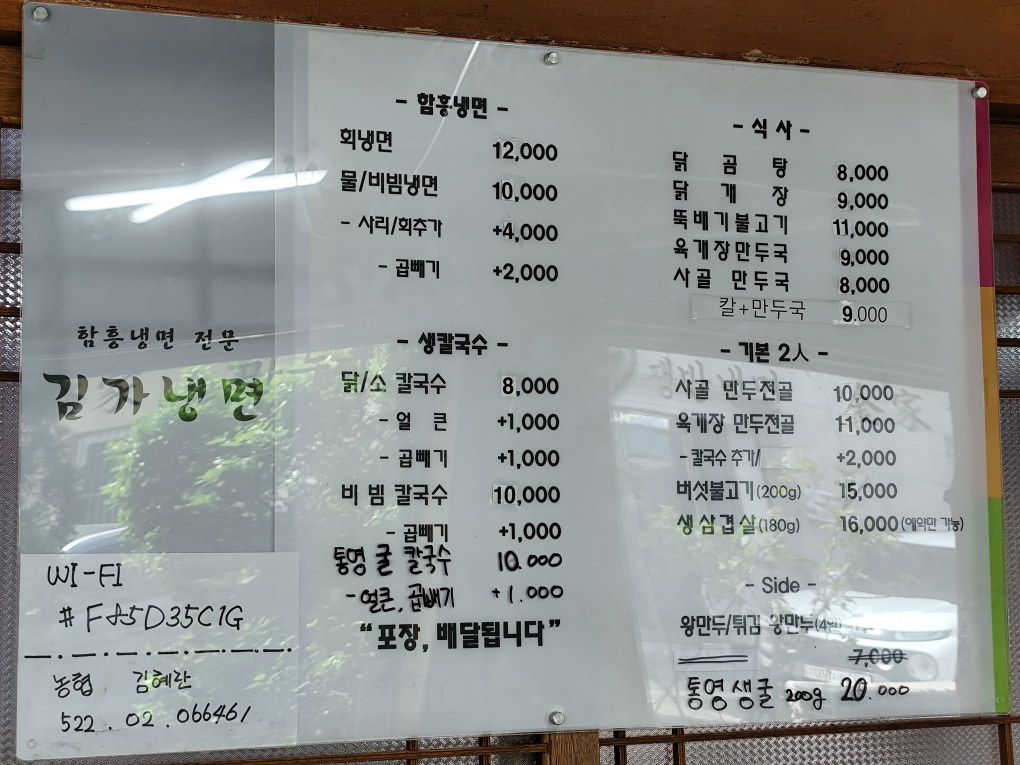 함흥냉면 전문
김가냉면
WI-FI
# F85D35C1G
농협 김혜란
522.02.066461
- 함흥냉면 -
회냉면 12,000
물/비빔냉면 10,000
- 사리/회추가 +4,000
- 곱빼기 +2,000
- 생칼국수 -
닭/소 칼국수 8,000
- 얼 큰 +1,000
- 곱빼기 +1,000
비 빔 칼국수 10,000
- 곱빼기 +1,000
통영 굴 칼국수 10.000
- 얼큰, 곱빼기 +1.000
“포장, 배달됩니다”
- 식 사 -
닭 곰 탕 8,000
닭 개 장 9,000
뚝배기불고기 11,000
육개장만두국 9,000
사골 만두국 8,000
칼+만두국 9.000
- 기본 2人 -
사골 만두전골 10,000
육개장 만두전골 11,000
- 칼국수 추가/ +2,000
버섯불고기(200g) 15,000
생삼겹살(180g) 16,000 (예약만 가능)
- Side -
왕만두/튀김 왕만두(4알)
7,000
통영 생굴 200g 20.000